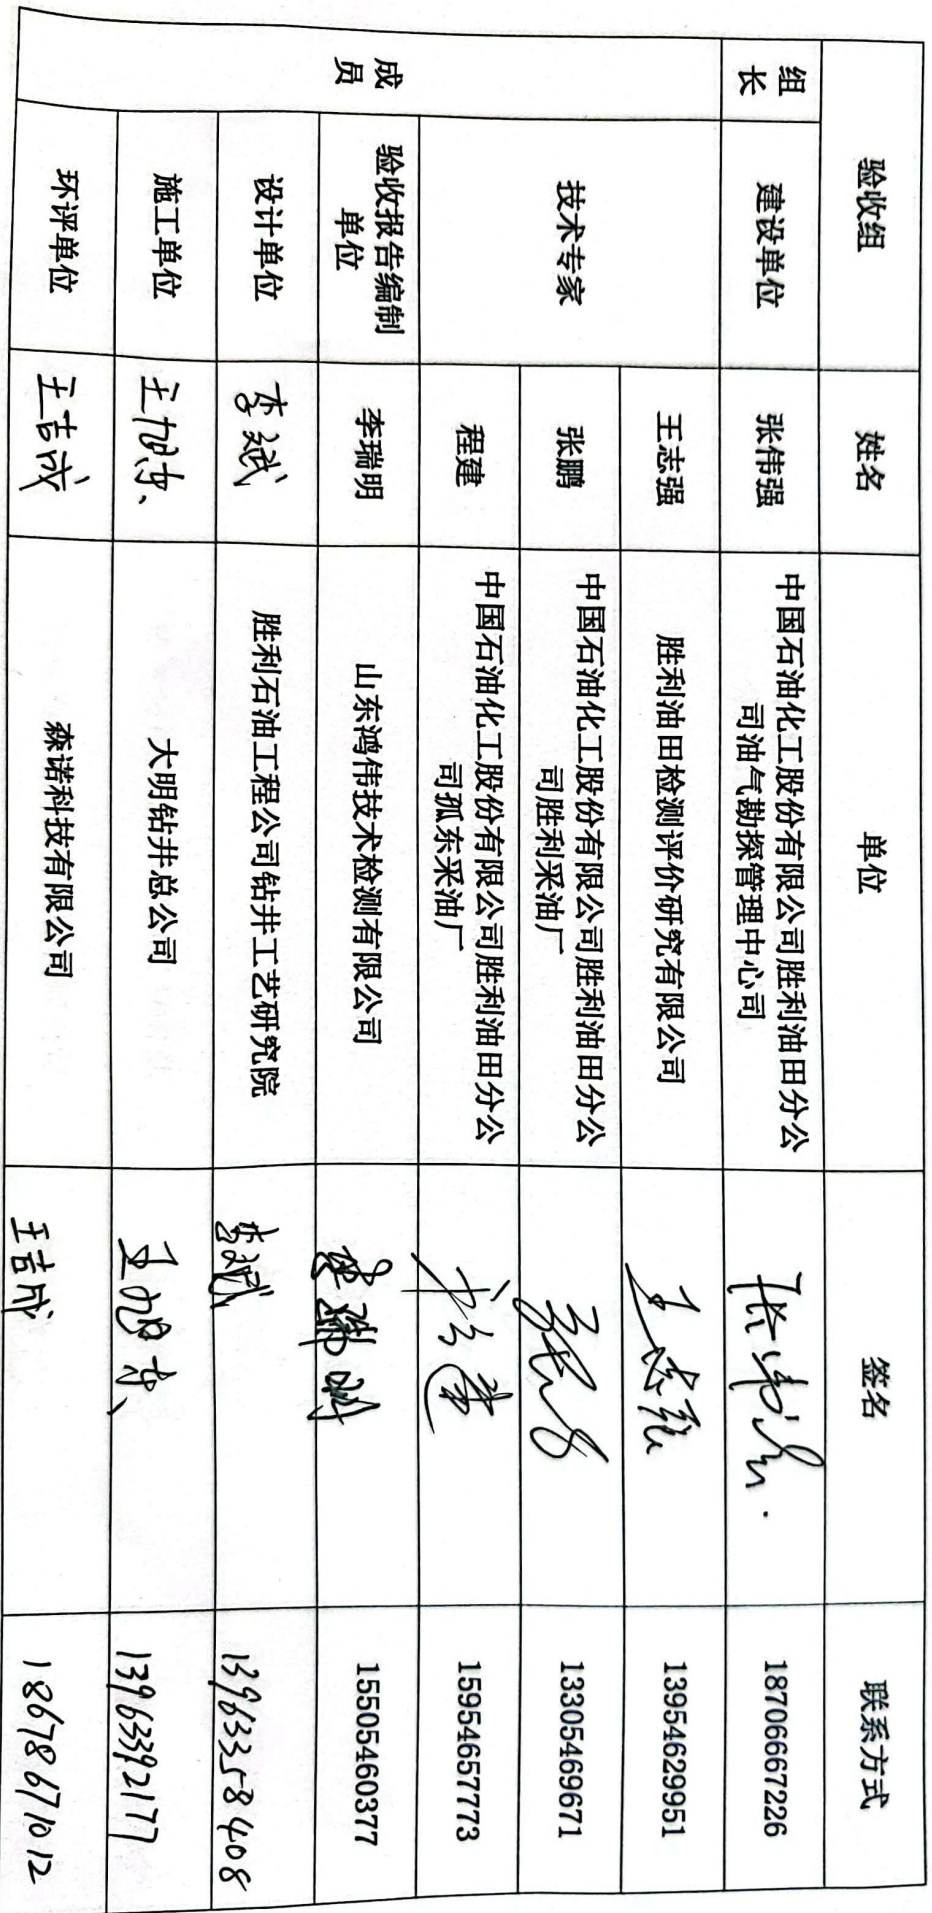 验收组 姓名 单位 签名 联系方式
组长 建设单位 张伟强 中国石油化工股份有限公司胜利油田分公
司油气勘探管理中心司 张伟强 18706667226
成员 技术专家 王志强 胜利油田检测评价研究有限公司 王志强 13954629951
张鹏 中国石油化工股份有限公司胜利油田分公
司胜利采油厂 张鹏 13305469671
程建 中国石油化工股份有限公司胜利油田分公
司孤东采油厂 程建 15954657773
验收报告编制
单位 李瑞明 山东鸿伟技术检测有限公司 李瑞明 15505460377
设计单位 李斌 胜利石油工程公司钻井工艺研究院 李斌 13963358408
施工单位 王旭东 大明钻井总公司 王旭东 13963392177
环评单位 王吉成 森诺科技有限公司 王吉成 18678671012